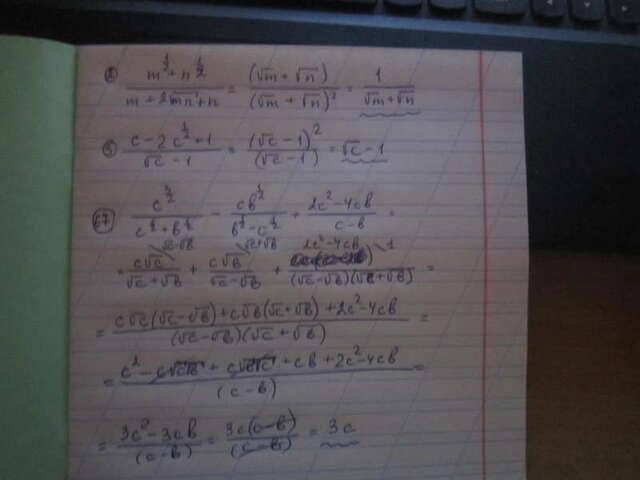 ② (m^(1/2) + n^(1/2)) / (m + 2√mn + n) = (√m + √n) / (√m + √n)² = 1 / (√m + √n)
(c - 2c^(1/2) + 1) / (√c - 1) = (√c - 1)² / (√c - 1) = √c - 1
67 c^(3/2) / (c^(1/2) + b^(1/2)) - cb^(1/2) / (b^(1/2) - c^(1/2)) + (2c² - 4cb) / (c - b) =
= c√c / (√c + √b) + c√b / (√c - √b) + (2c² - 4cb) / ((√c - √b)(√c + √b)) =
= (c√c(√c - √b) + c√b(√c + √b) + 2c² - 4cb) / ((√c - √b)(√c + √b)) =
= (c² - c√cb + c√bc + cb + 2c² - 4cb) / (c - b) =
= (3c² - 3cb) / (c - b) = 3c(c - b) / (c - b) = 3c